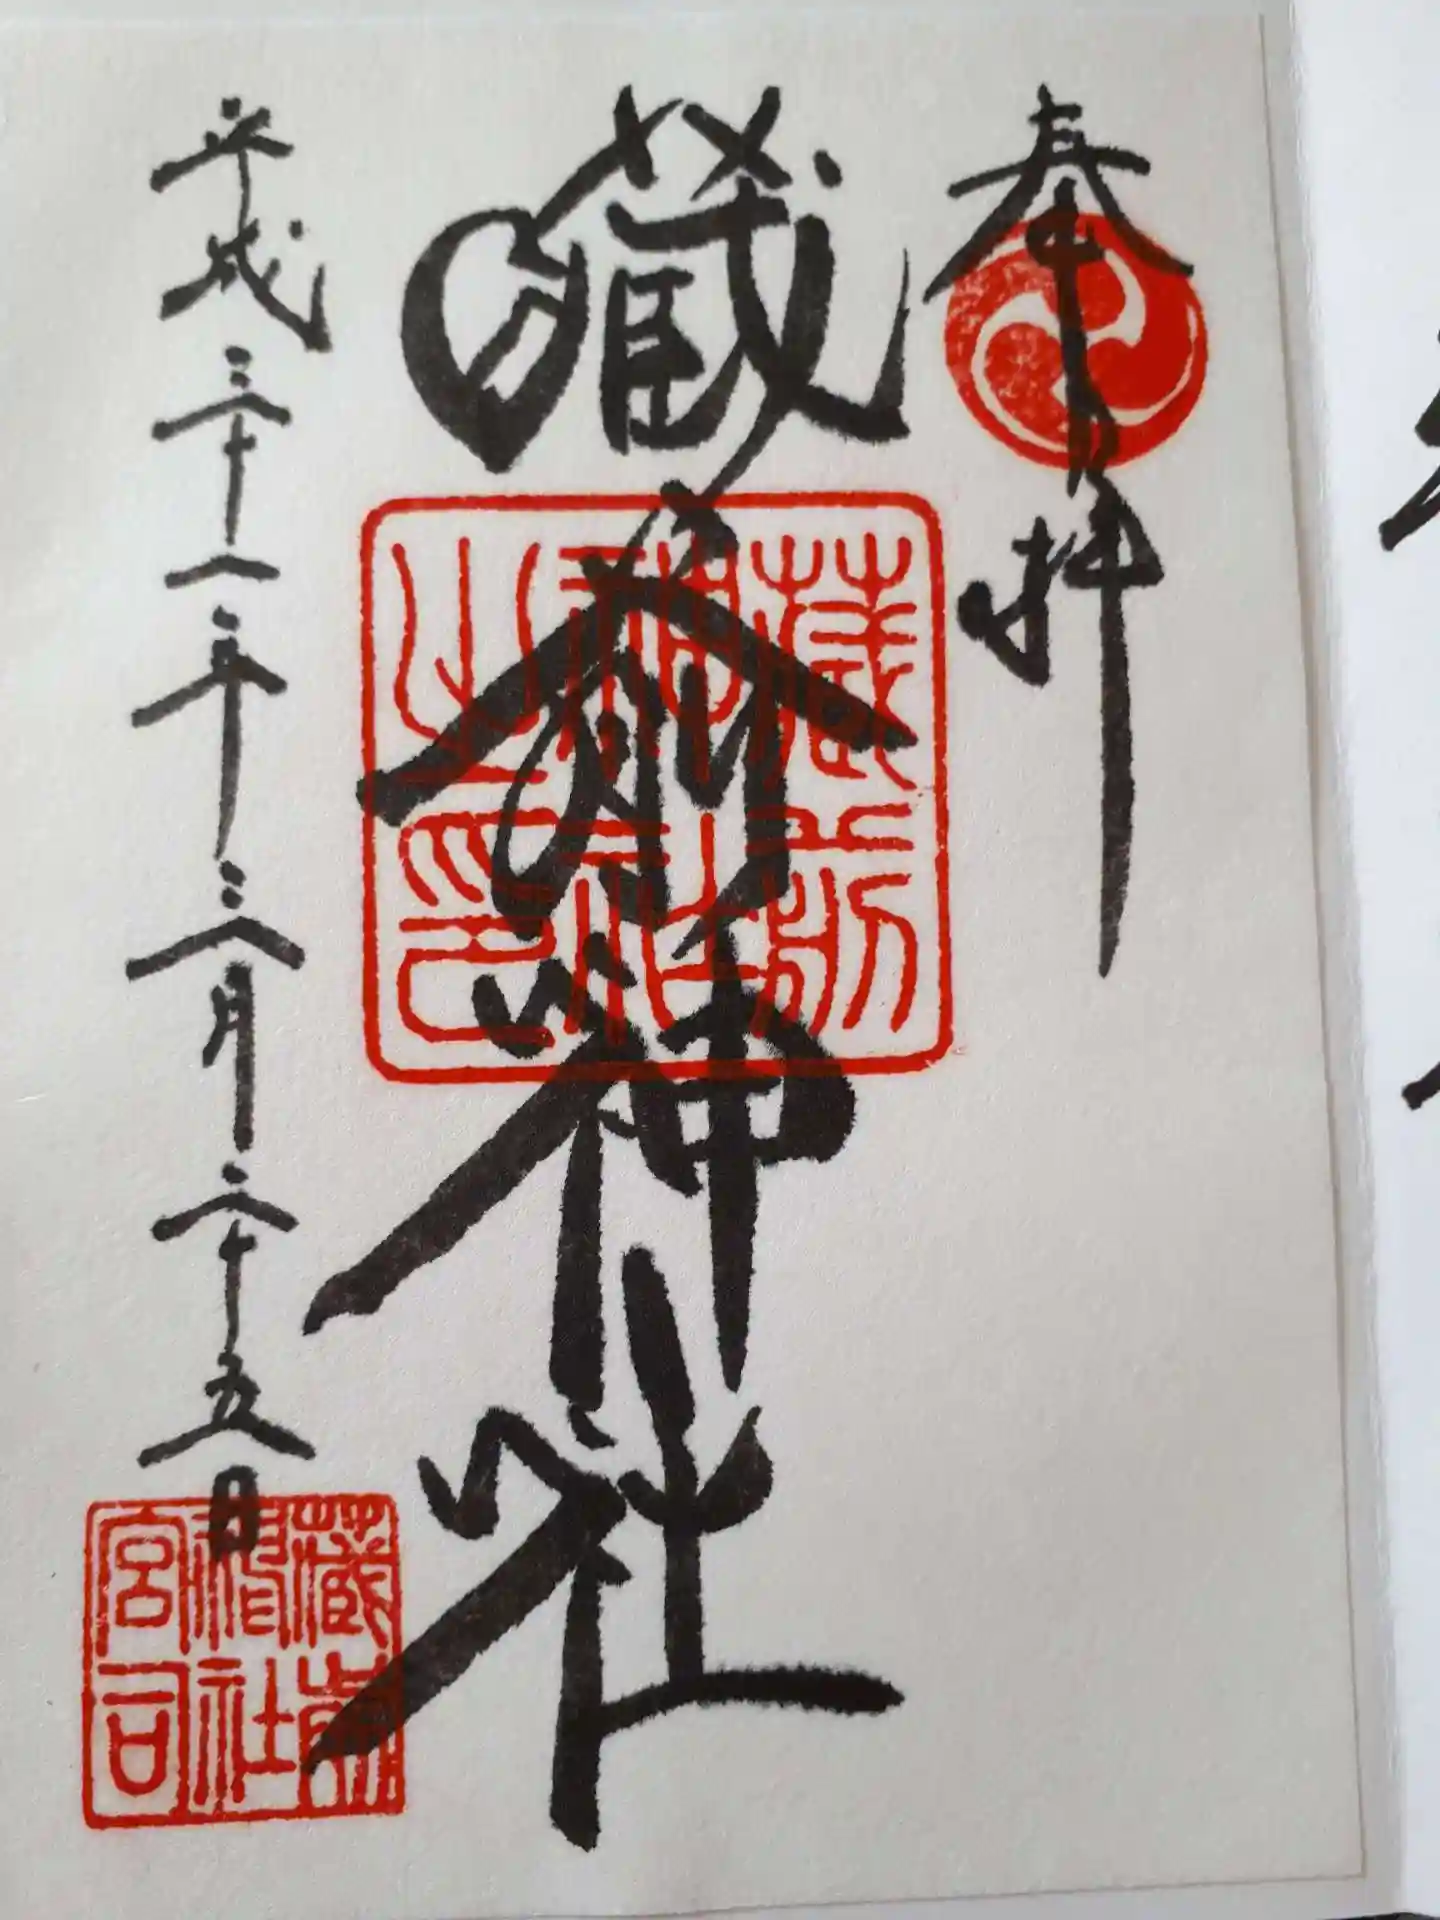 奉拝
蔵前神社
蔵前神社之印
平成三十一年三月二十五日
蔵前神社宮司